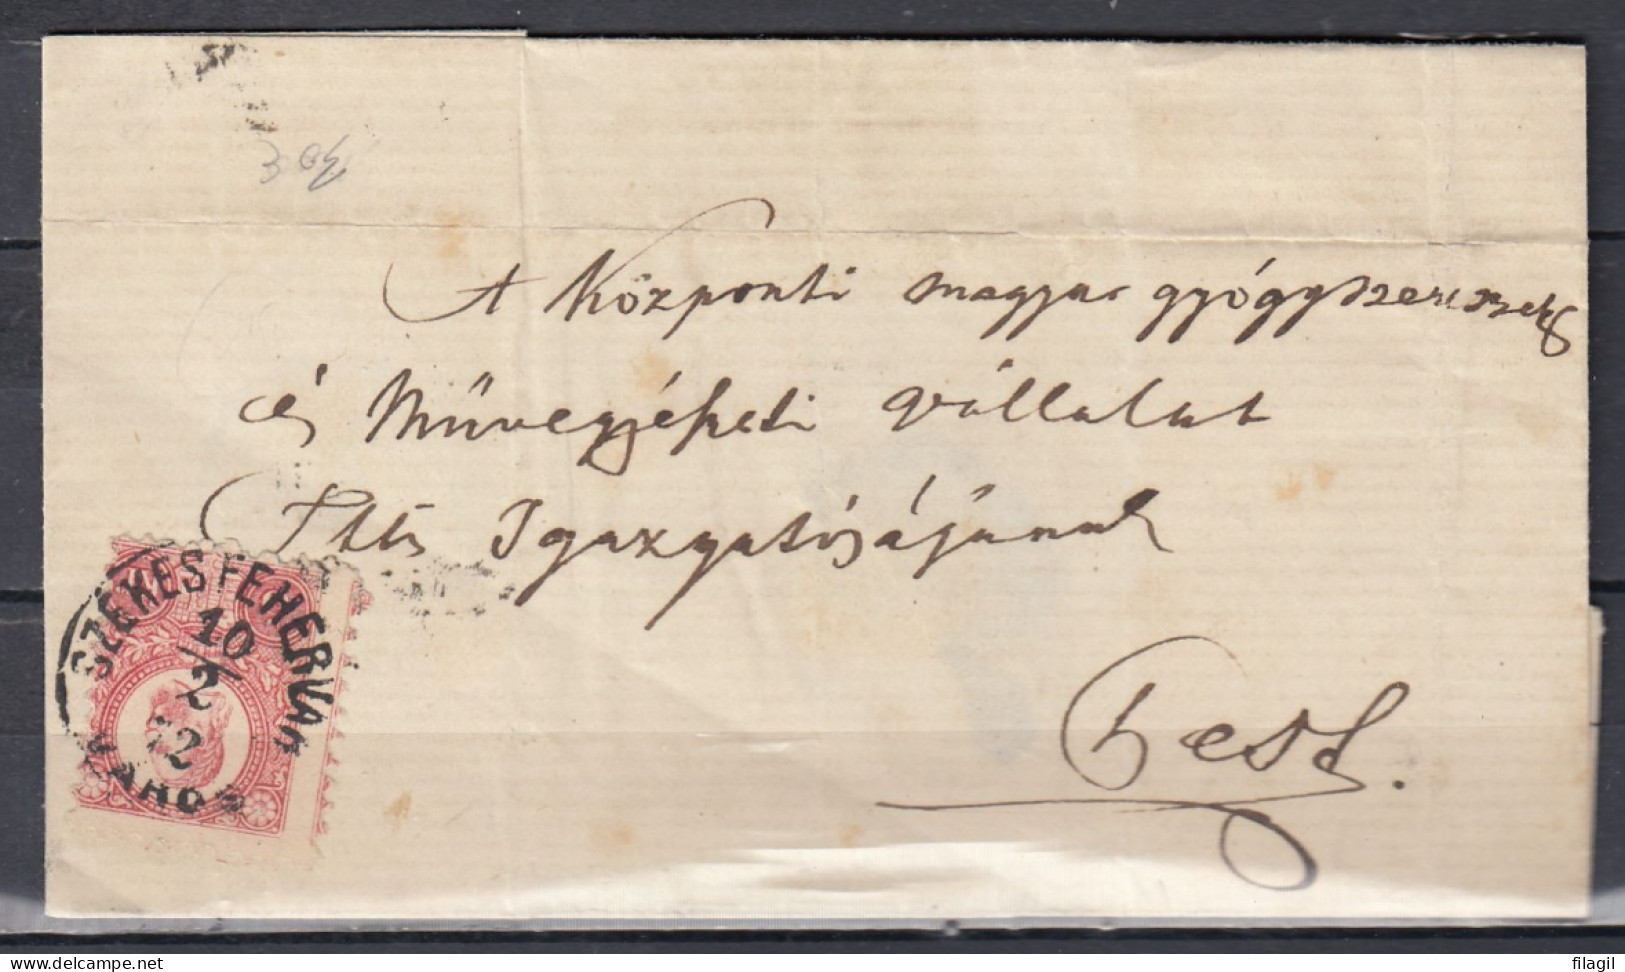 A Központi magyar gyógyszerészek
és Művegyészeti vállalat
Ttts Igazgatójának
Pest.
SZÉKESFEHÉRVÁR
10
2
72
VÁROS
filagil
www.delcampe.net